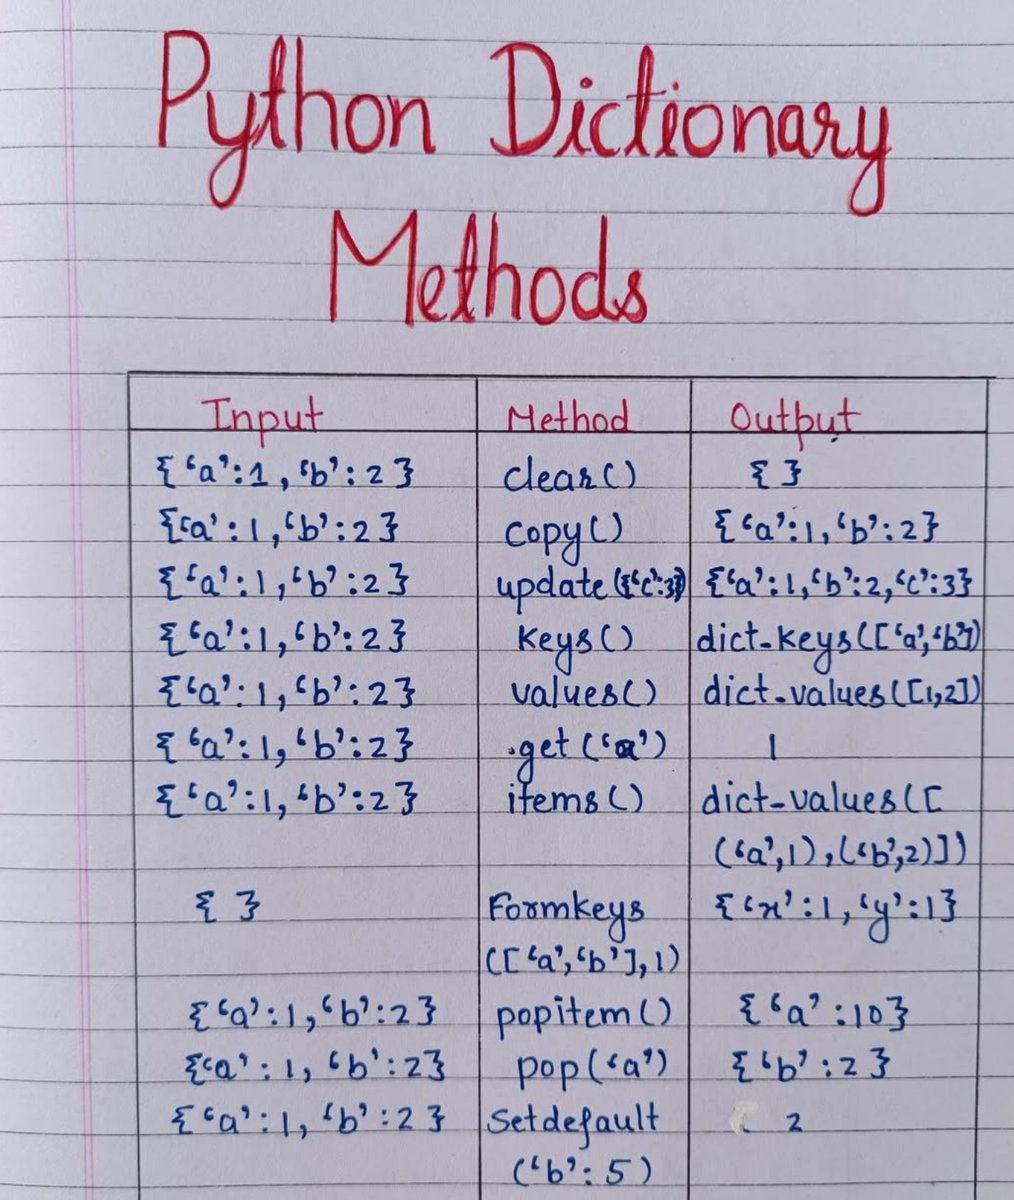 Python Dictionary
Methods
Input Method Output
{‘a’:1, ‘b’:2} clear() { }
{‘a’:1,‘b’:2} copy() {‘a’:1,‘b’:2}
{‘a’:1,‘b’:2} update({‘c’:3}) {‘a’:1,‘b’:2,‘c’:3}
{‘a’:1,‘b’:2} keys() dict-keys([‘a’,‘b’])
{‘a’:1,‘b’:2} values() dict-values([1,2])
{‘a’:1,‘b’:2} .get(‘a’) 1
{‘a’:1,‘b’:2} items() dict-values([
(‘a’,1),(‘b’,2)])
{ } Formkeys {‘x’:1,‘y’:1}
([‘a’,‘b’],1)
{‘a’:1,‘b’:2} popitem() {‘a’:10}
{‘a’:1, ‘b’:2} pop(‘a’) {‘b’:2}
{‘a’:1, ‘b’:2} Setdefault 2
(‘b’: 5)